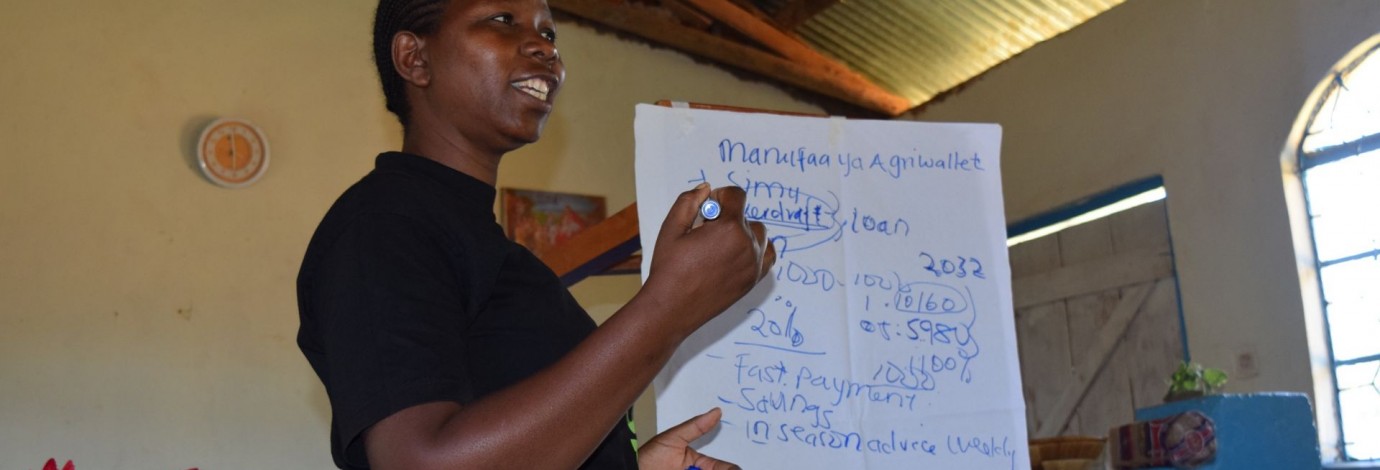 Manufaa ya Agriwallet
Simu
loan
2032
1020
1. 10160
20%
05: 5980
100%
1000
- Fast Payment.
- Savings
- In season advice weekly